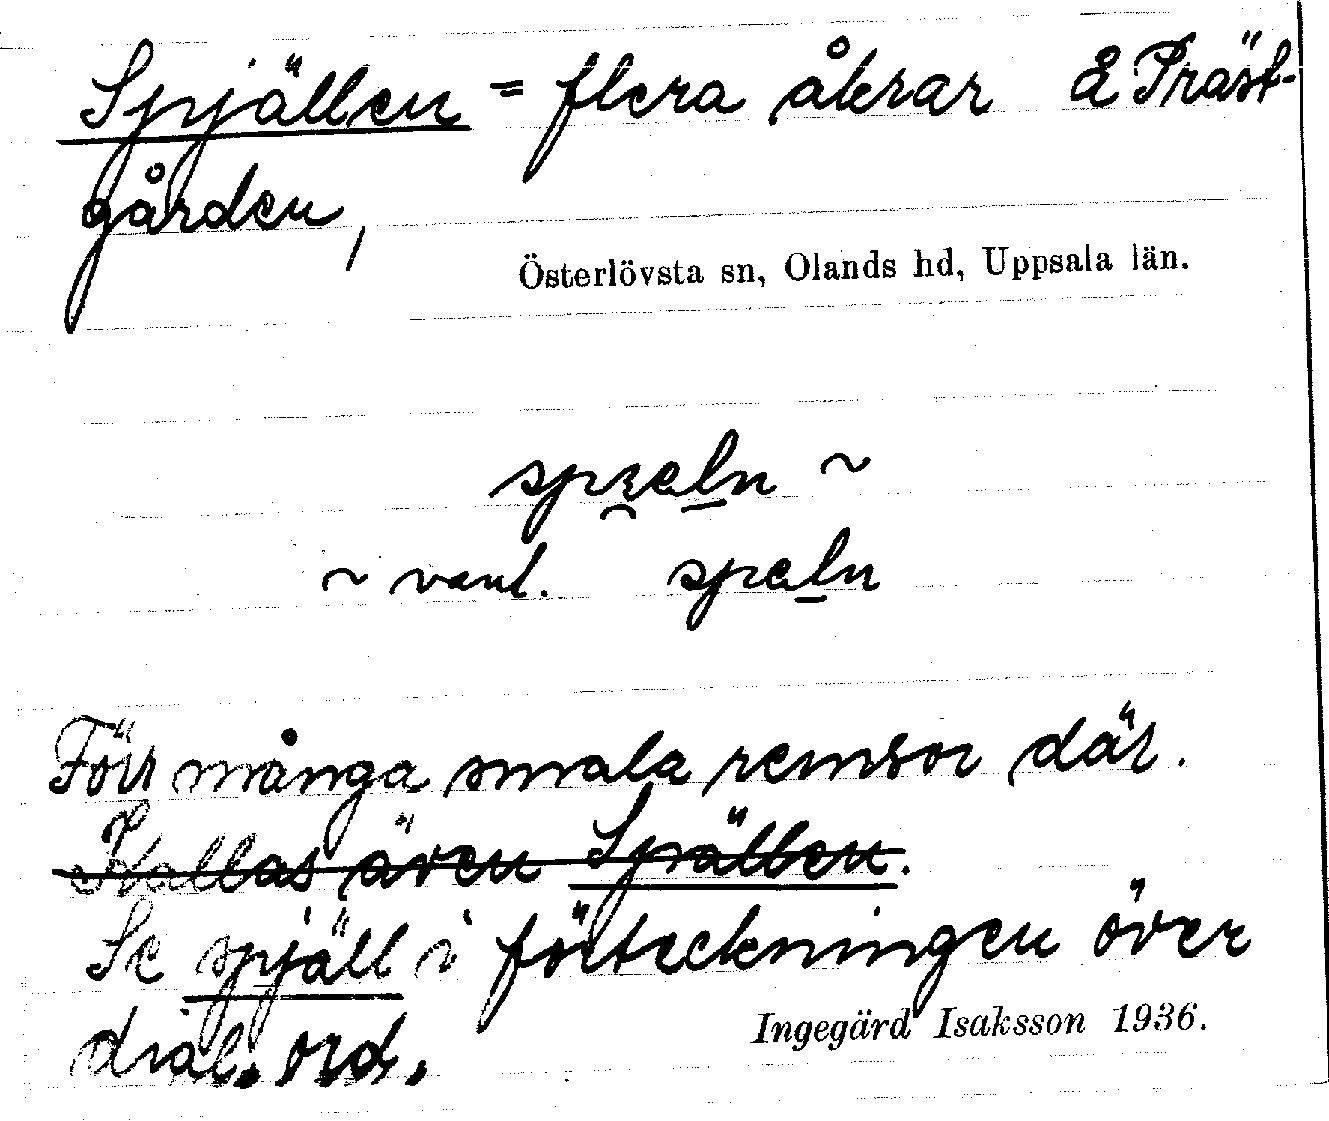 Spjällen = flera åkrar å Präst-
gården,
Österlövsta sn, Olands hd, Uppsala län.
~ vanl. speln
Förr många smala remsor där.
Kallas även Sprällen.
Se spjäll i förteckningen över
dial. ord.
Ingegärd Isaksson 1936.